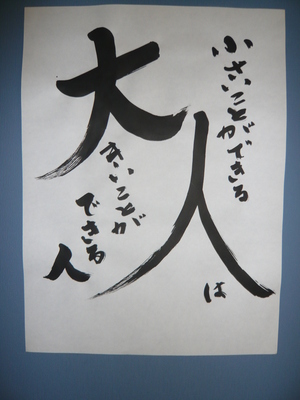 小さいことができる
人は
大きいことが
できる
人